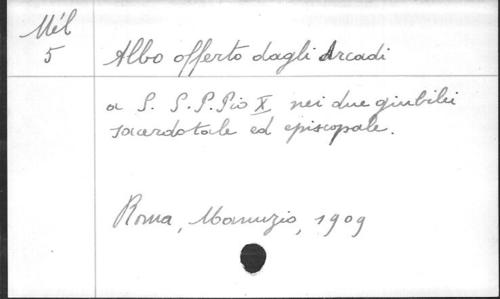 Mél
5
Albo offerto dagli Arcadi
a S. S. P. Pio X nei due giubilei
sacerdotale ed episcopale.
Roma, Manuzio, 1909